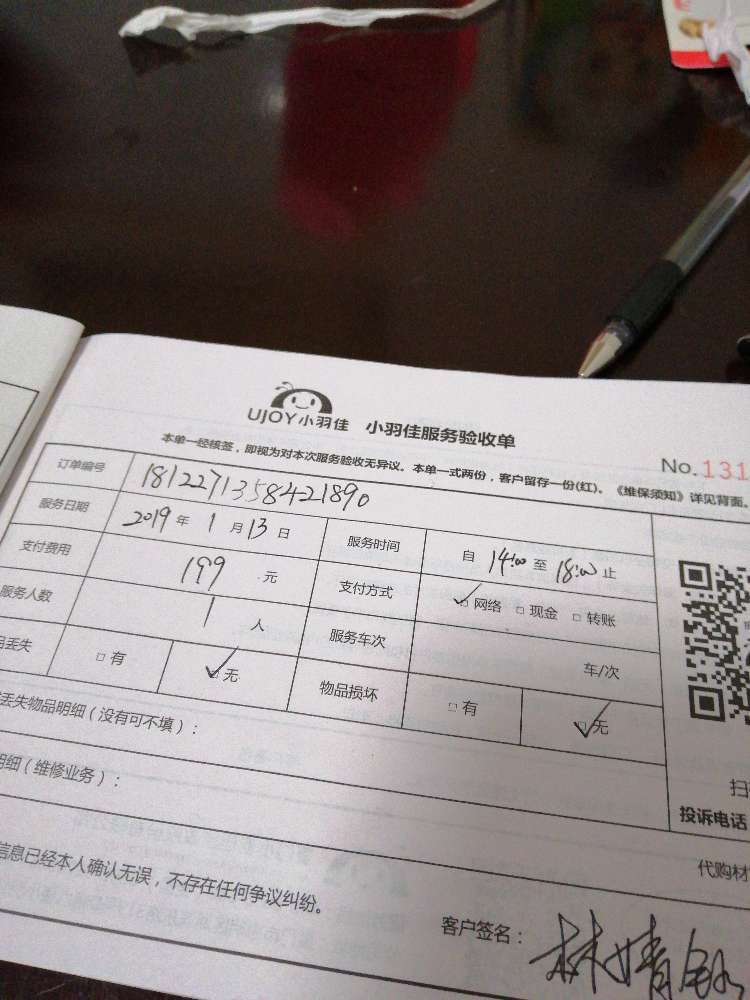 UJOY小羽佳 小羽佳服务验收单
No.131
本单一经核签，即视为对本次服务验收无异议。本单一式两份，客户留存一份(红)。《维保须知》详见背面。
订单编号 1812271358421890
服务日期 2019年1月13日 服务时间 自14:00至18:00止
支付费用 199元 支付方式 ☑网络 □现金 □转账
服务人数 1人 服务车次 车/次
丢失 □有 ☑无 物品损坏 □有 ☑无
丢失物品明细（没有可不填）：
明细（维修业务）：
投诉电话
代购材
信息已经本人确认无误，不存在任何争议纠纷。
客户签名：林婧